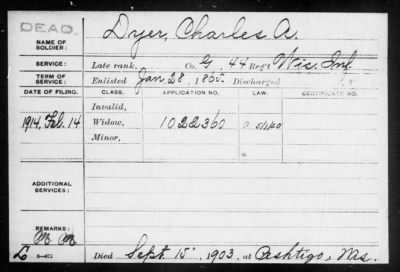 DEAD.
NAME OF SOLDIER: Dyer, Charles A.
SERVICE: Late rank, Co. G, 44 Reg't Wis. Inf
TERM OF SERVICE: Enlisted Jan. 28, 1865. Discharged
DATE OF FILING. CLASS. APPLICATION NO. LAW. CERTIFICATE NO.
Invalid,
1914, Feb. 14 Widow, 1022360
Minor,
ADDITIONAL SERVICES:
REMARKS:
6-461 Died Sept. 15, 1903, at Peshtigo, Wis.